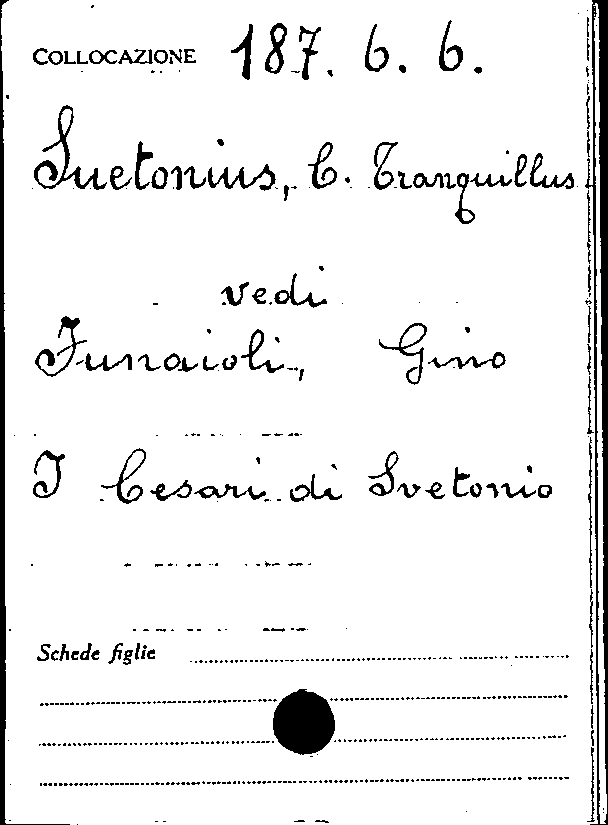 COLLOCAZIONE 187. 6. 6.
Suetonius, C. Tranquillus
vedi
Funaioli, Gino
I Cesari di Svetonio
Schede figlie